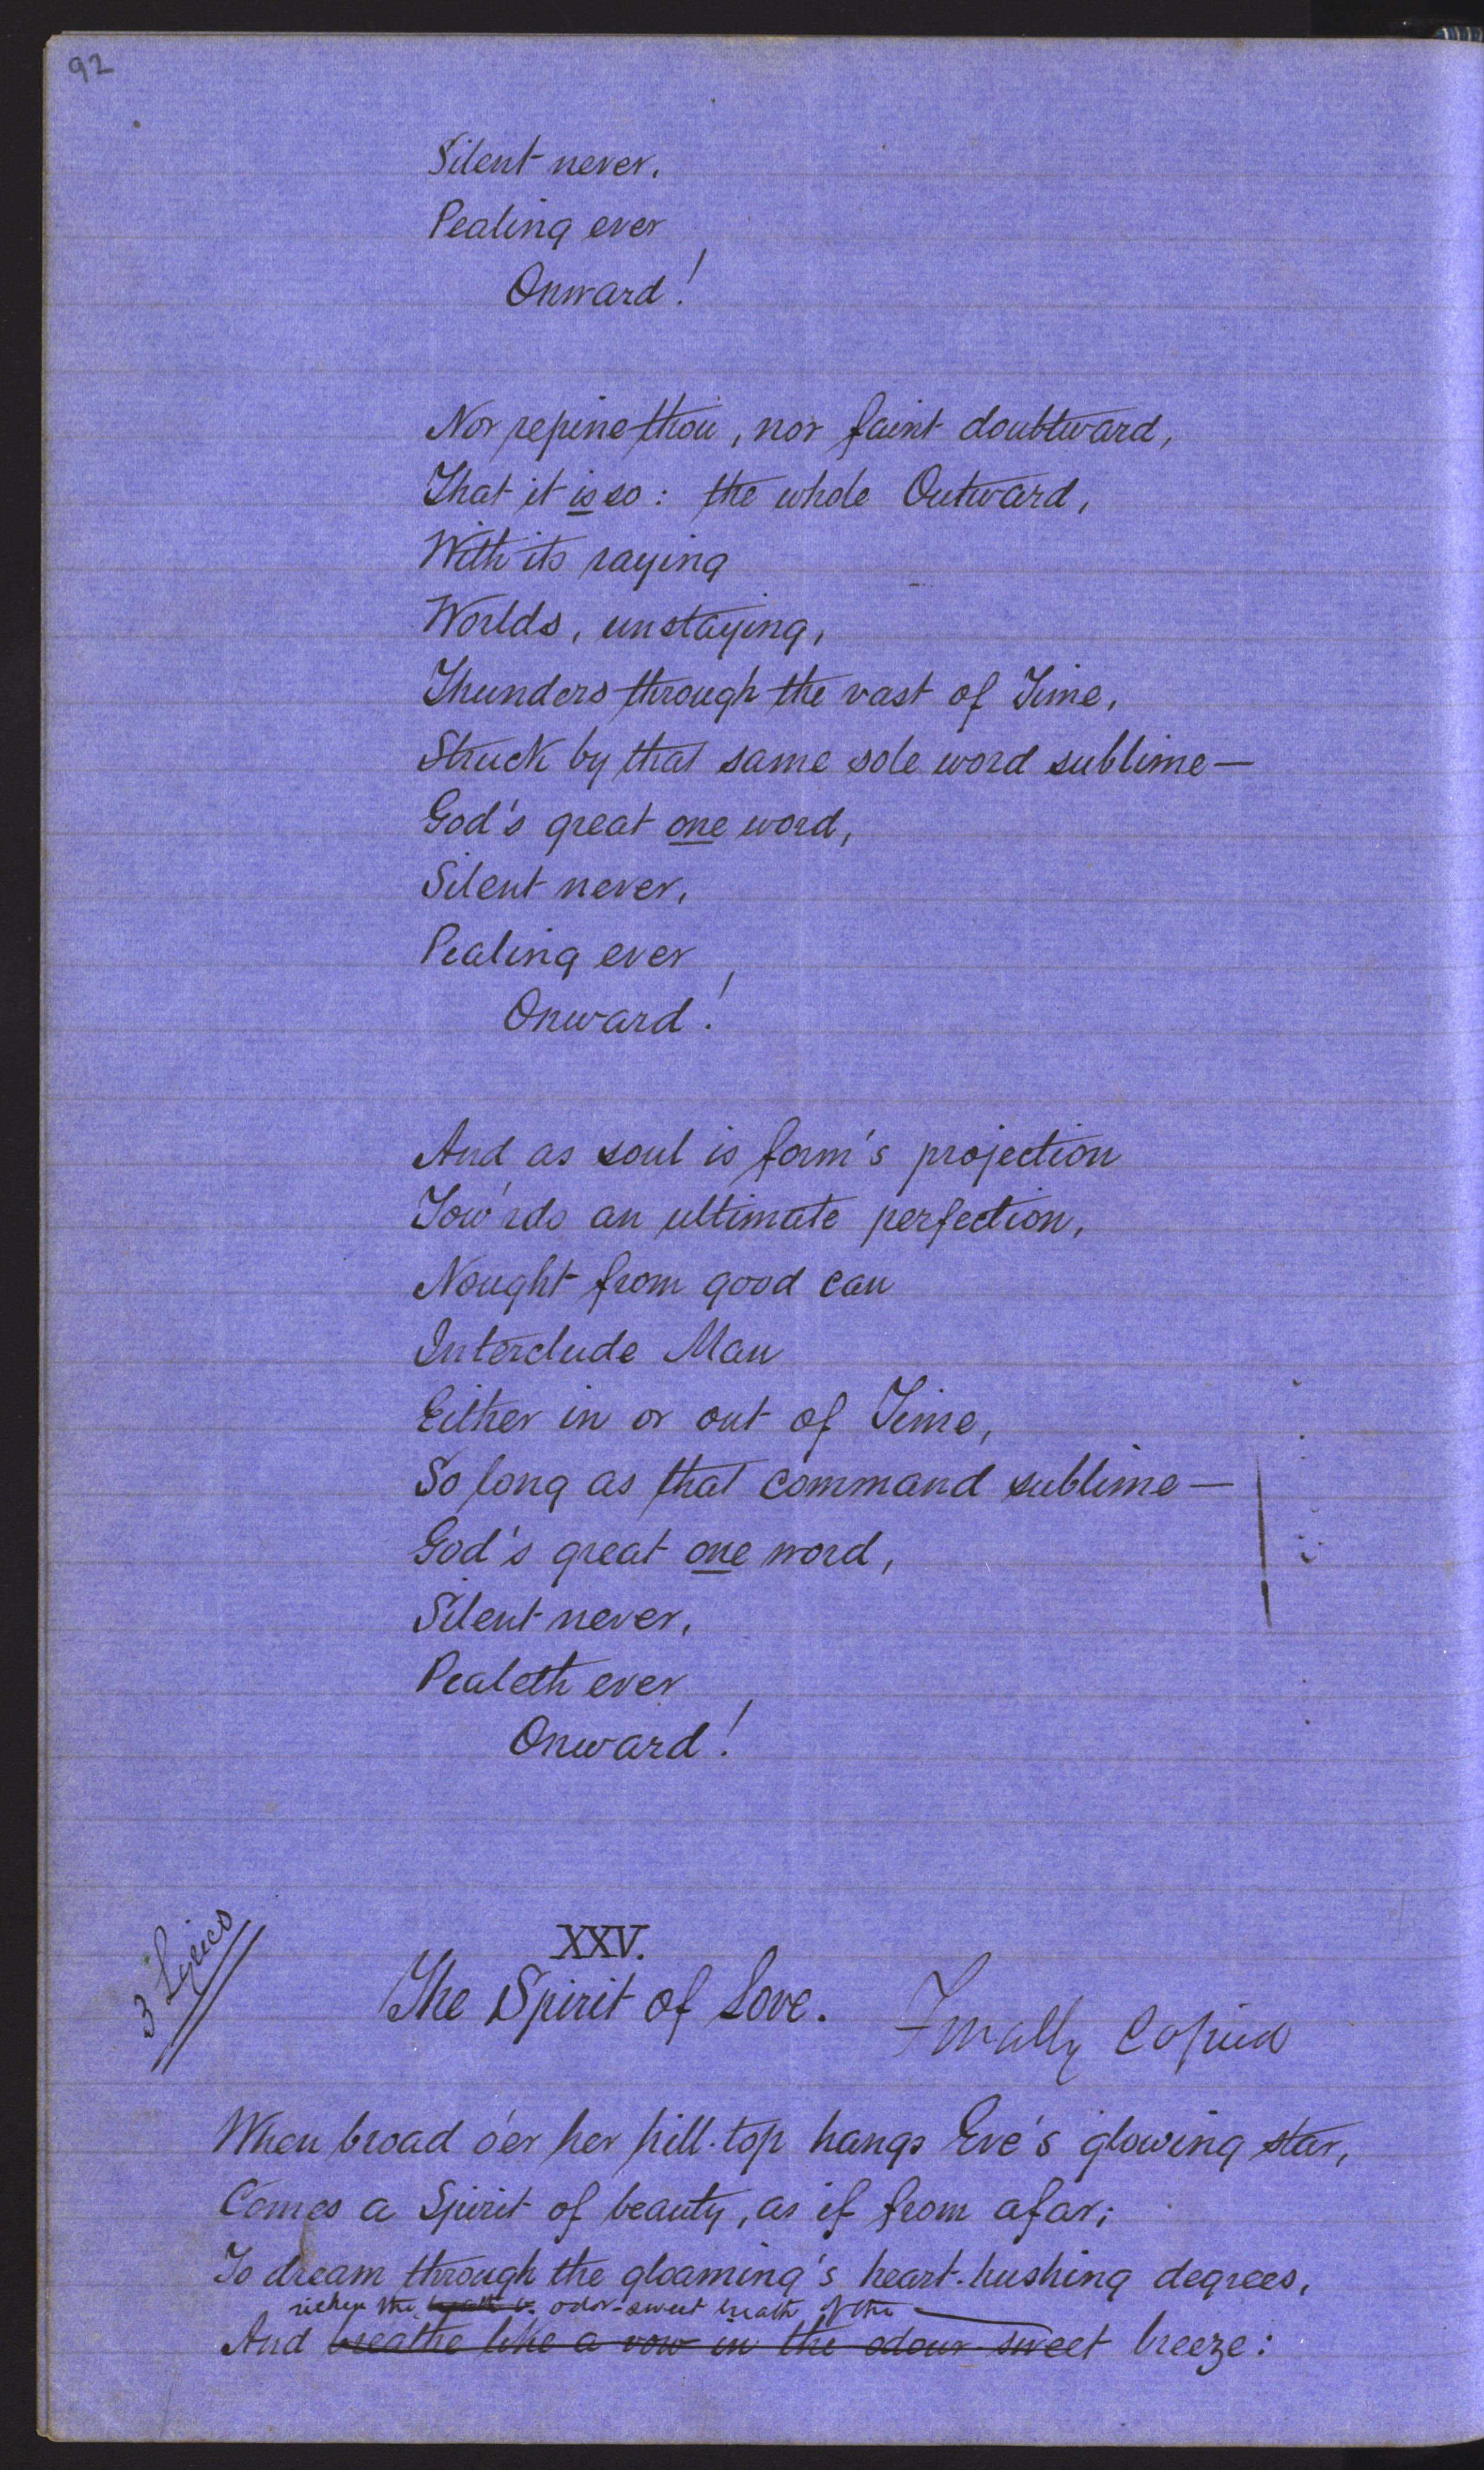 92
Silent never,
Pealing ever
Onward!
Nor repine thou, nor faint doubtward,
That it is so: the whole Outward,
With its raying
Worlds, unstaying,
Thunders through the vast of Time,
Struck by that same sole word sublime—
God's great one word,
Silent never,
Pealing ever
Onward!
And as soul is form's projection
Tow'rds an ultimate perfection,
Nought from good can
Interclude Man
Either in or out of Time,
So long as that command sublime—
God's great one word,
Silent never,
Pealeth ever
Onward!
3 Lyrics
XXV.
The Spirit of Love. Finally Copied
When broad o'er her hill-top hangs Eve's glowing star,
Comes a Spirit of beauty, as if from afar;
To dream through the gloaming's heart-hushing degrees,
richen the odor-sweet breath of the
And breathe like a vow in the odour-sweet breeze: